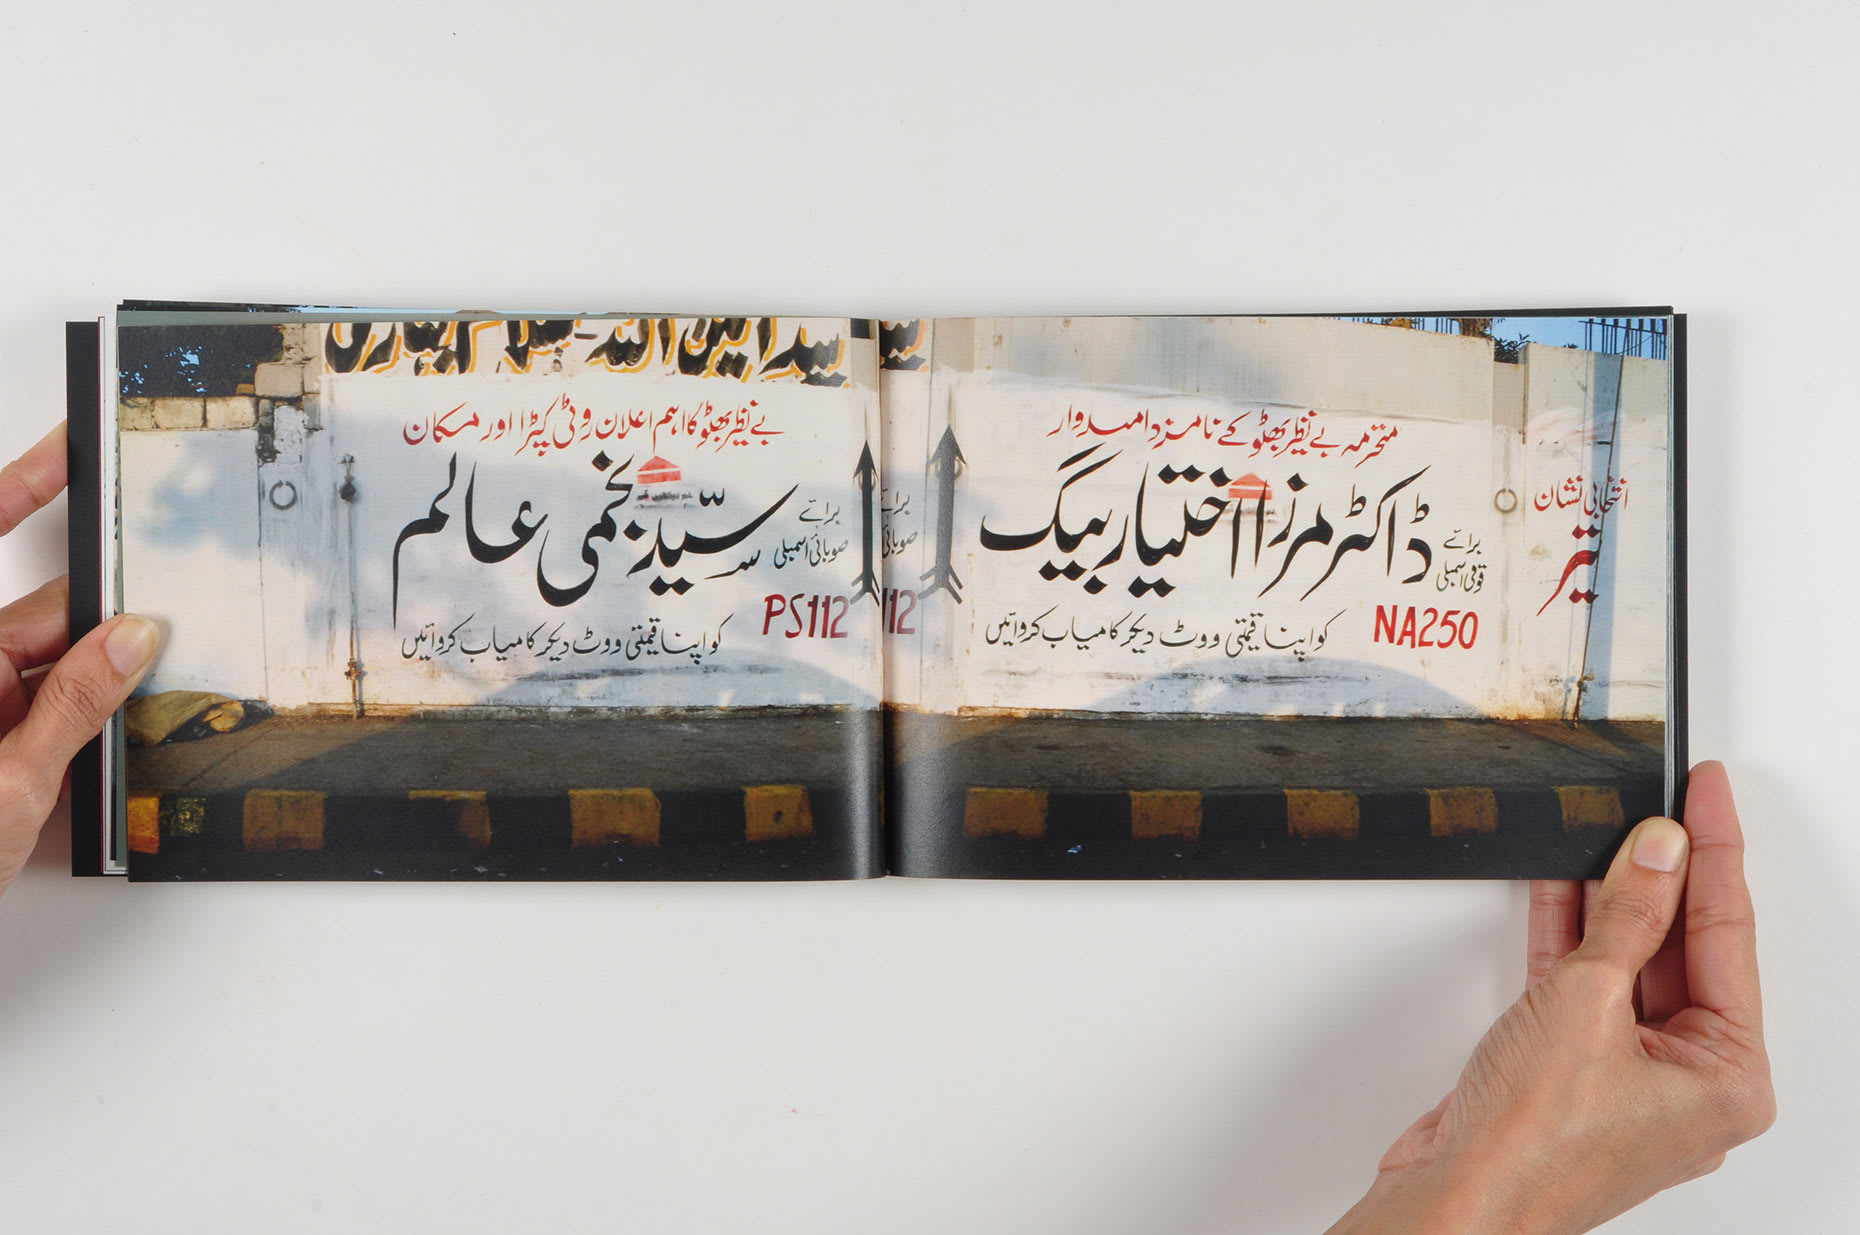 سید امین اللہ
بے نظیر بھٹو کا اہم اعلان روٹی کپڑا اور مکان
سیّد نجمی عالم
برائے
صوبائی اسمبلی
PS112
کو اپنا قیمتی ووٹ دیکر کامیاب کروائیں
برائے
صوبائی
112
محترمہ بے نظیر بھٹو کے نامزد امیدوار
ڈاکٹر مرزا اختیار بیگ
برائے
قومی اسمبلی
NA250
کو اپنا قیمتی ووٹ دیکر کامیاب کروائیں
انتخابی نشان
تیر